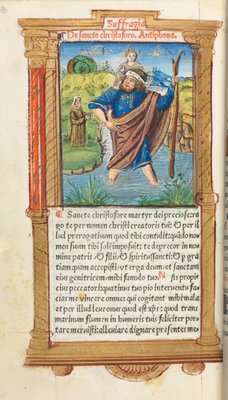 Suffragia
De sancto christoforo. Antiphona.
Sancte christofore martyr dei preciose ro
go te per nomen christi creatoris tui: & per il
lud prerogatiuum quod tibi contulit quãdo no
men suum tibi soli imposuit: te deprecor in no
mine patris & filii & spiritussancti & per gra
tiam quam accepisti vt erga deum & sanctam
eius genitricem mihi famulo tuo N. sis propi
cius peccatori quatinus tuo pio interuentu fa
cias me vincere omnes qui cogitant mihi mala
et per illud leue onus quod est xps: quod trans
marinum flumen in humeris tuis feliciter por
tare meruisti: alleuiare digneris presentes me